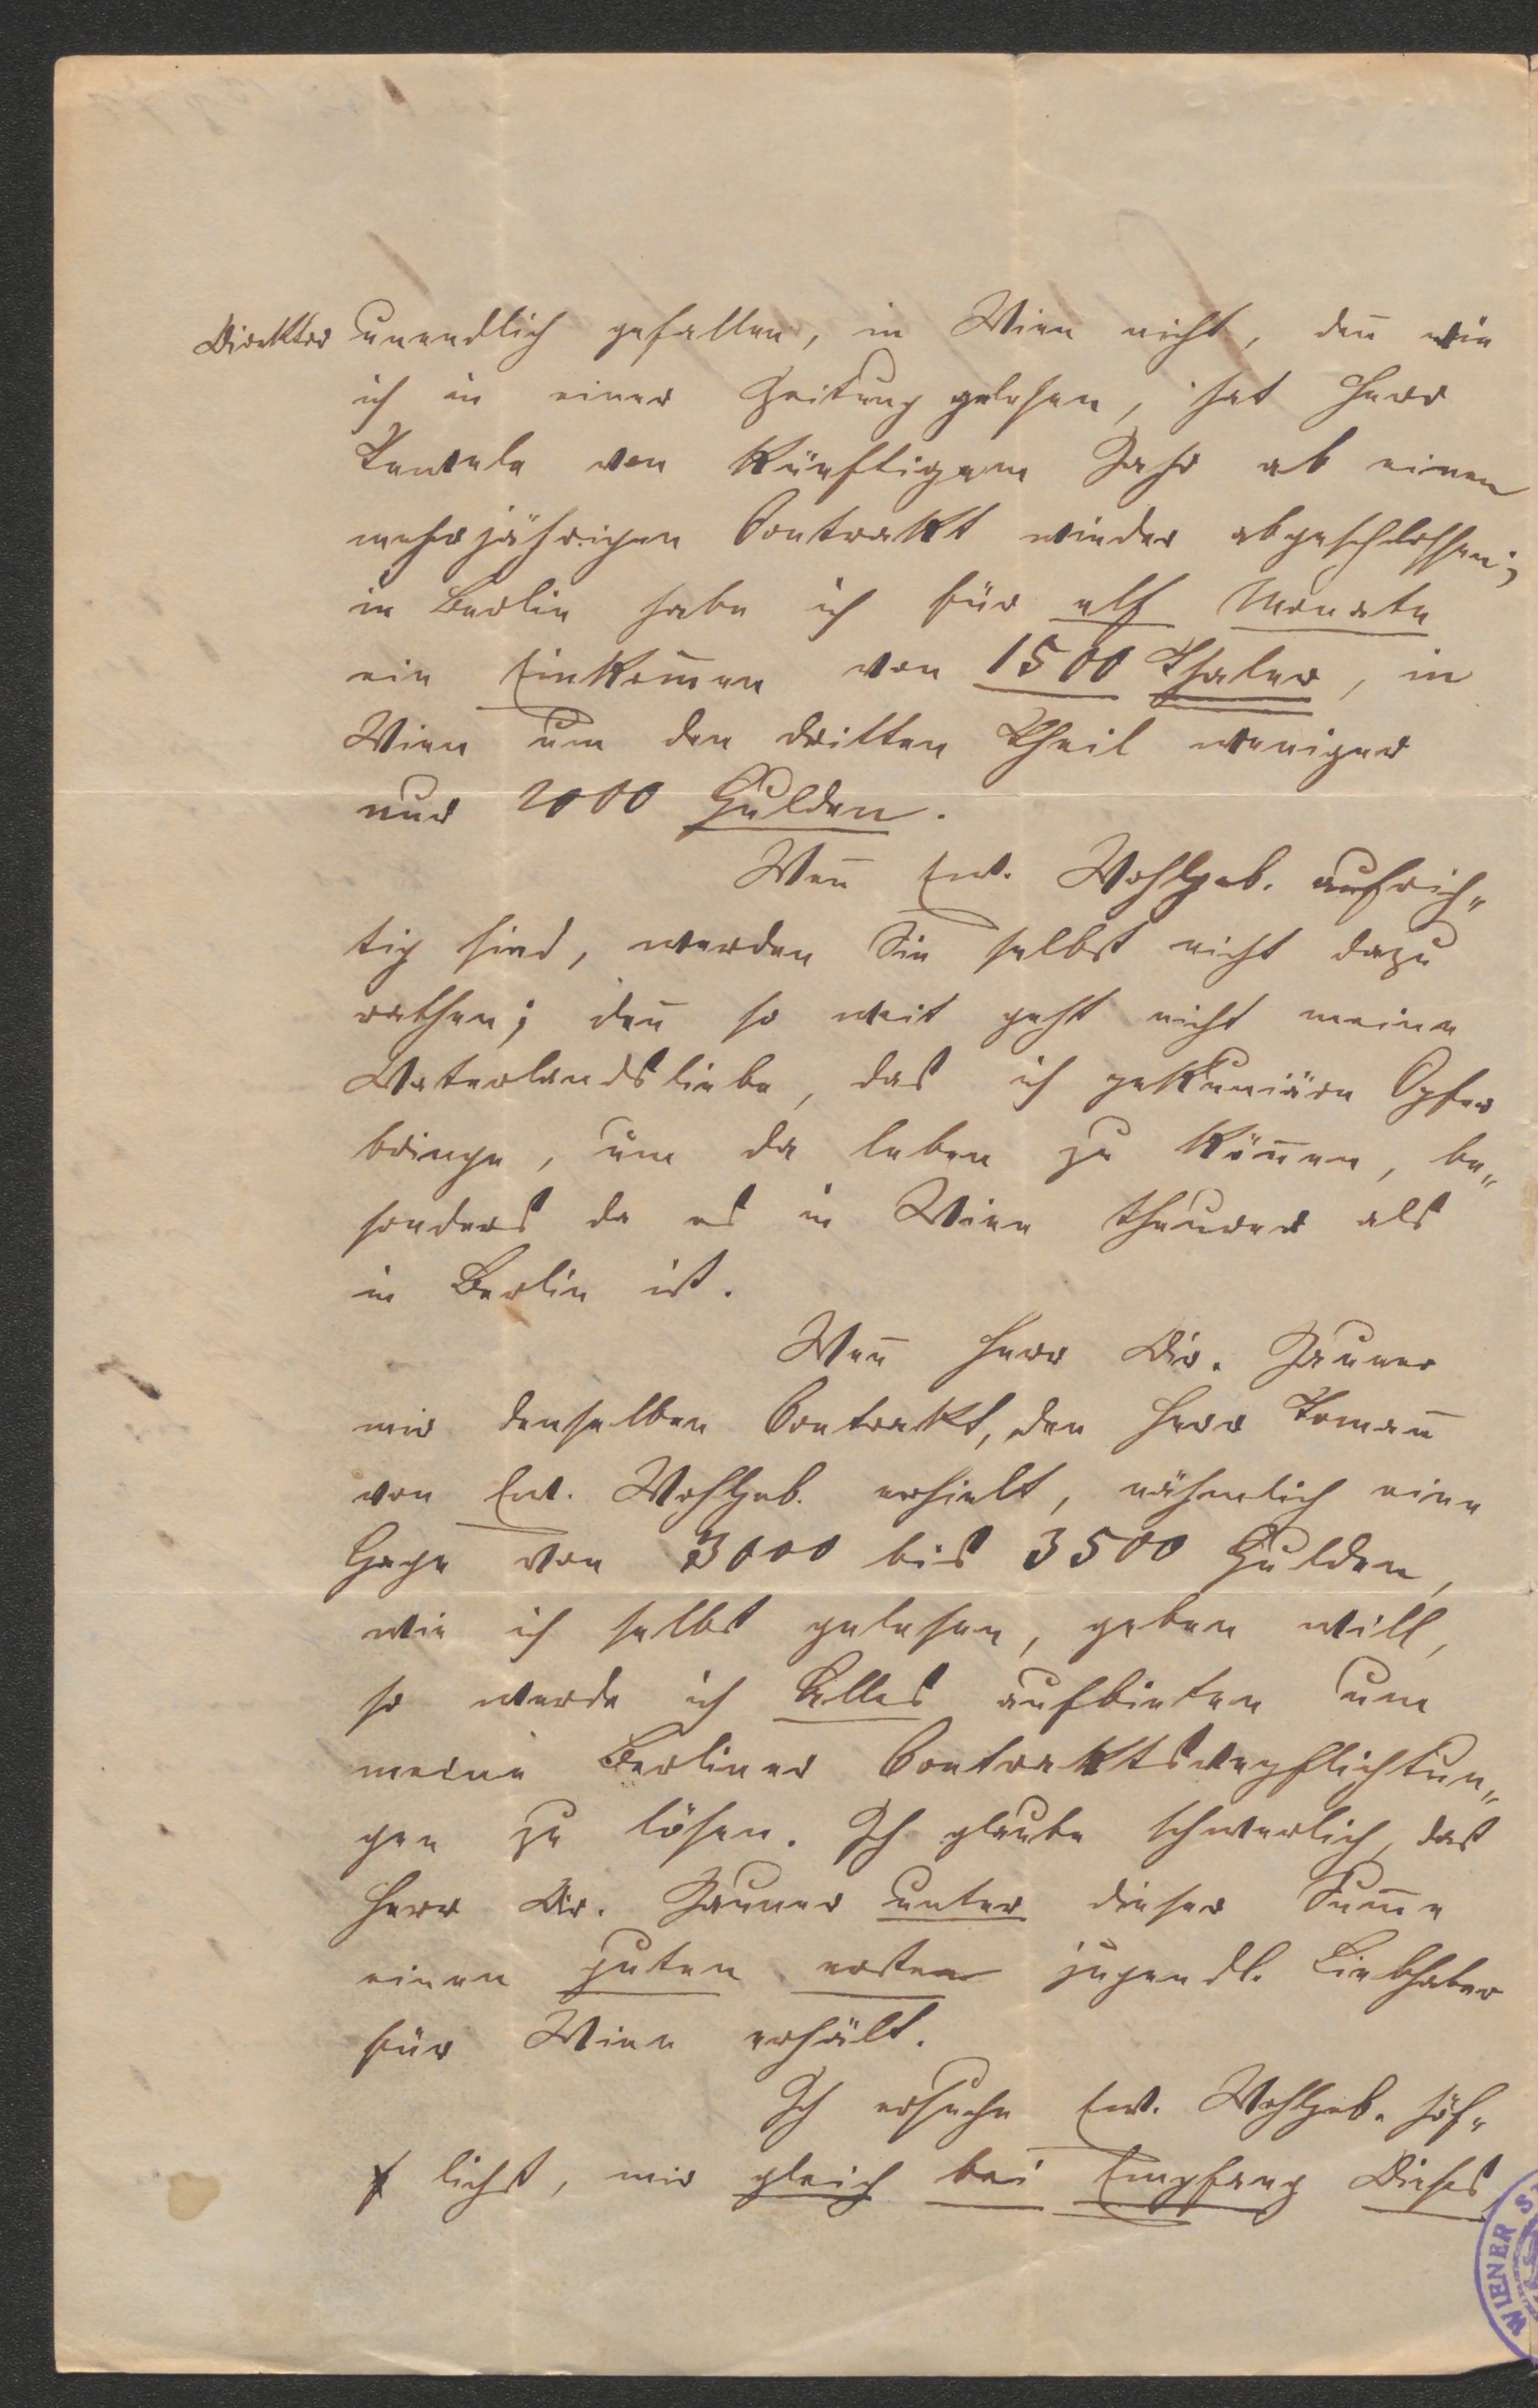 Direktor unendlich gefallen, in Wien nicht, den̄ wie
ich in einer Zeitung gelesen, hat Herr
Tewele von künftigem Jahr ab einen
mehrjährigen Contrakt wieder abgeschlossen;
in Berlin habe ich für elf Monate
ein Einkom̄en von 1500 Thaler, in
Wien um den dritten Theil weniger
nur 2000 Gulden.
Wen̄ Ew. Wohlgeb. aufrich„
tig sind, werden Sie selbst nicht dazu
rathen; den̄ so weit geht nicht meine
Vaterlandsliebe, das ich pekuniäre Opfer
bringe, um da leben zu kön̄en, be„
sonders da es in Wien theurer als
in Berlin ist.
Wen̄ Herr Dir. Jauner
mir denselben Contrakt, den Herr Toman̄
von Ew. Wohlgeb. erhielt, nähmlich eine
Gage von 3000 bis 3500 Gulden,
wie ich selbst gelesen, geben will,
so werde ich Alles aufbieten um
meine Berliner Contraktsverpflichtun„
gen zu lösen. Ich glaube schwerlich, das
Herr Dir. Jauner unter dieser Sum̄e
einen guten ersten jugendl. Liebhaber
für Wien erhält.
Ich ersuche Ew. Wohlgeb. höf„
lichst, mir gleich bei Empfang Dieses,
WIENER S